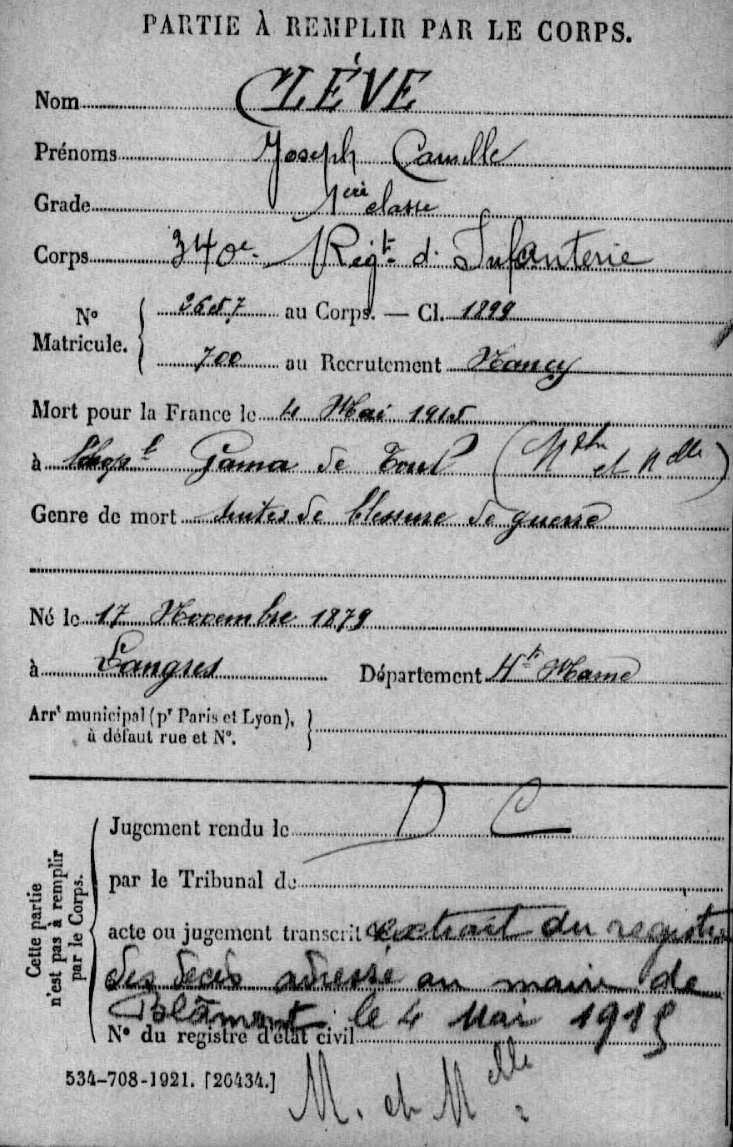 PARTIE À REMPLIR PAR LE CORPS.
Nom CLÉVE
Prénoms Joseph Camille
Grade 1ère classe
Corps 340e Régt d'Infanterie
N° Matricule. 2657 au Corps. — Cl. 1899
700 au Recrutement Nancy
Mort pour la France le 4 Mai 1915
à l'hopl Gama de Toul (Mthe et Melle)
Genre de mort suites de blessure de guerre
Né le 17 Novembre 1879
à Langres Département Hte Marne
Arrt municipal (pr Paris et Lyon),
à défaut rue et N°.
Jugement rendu le D C
par le Tribunal de
acte ou jugement transcrit extrait du registre
des décès adressé au maire de
Blâmont le 4 Mai 1915
N° du registre d'état civil
M. et Melle
534-708-1921. [26434.]
Cette partie
n'est pas à remplir
par le Corps.